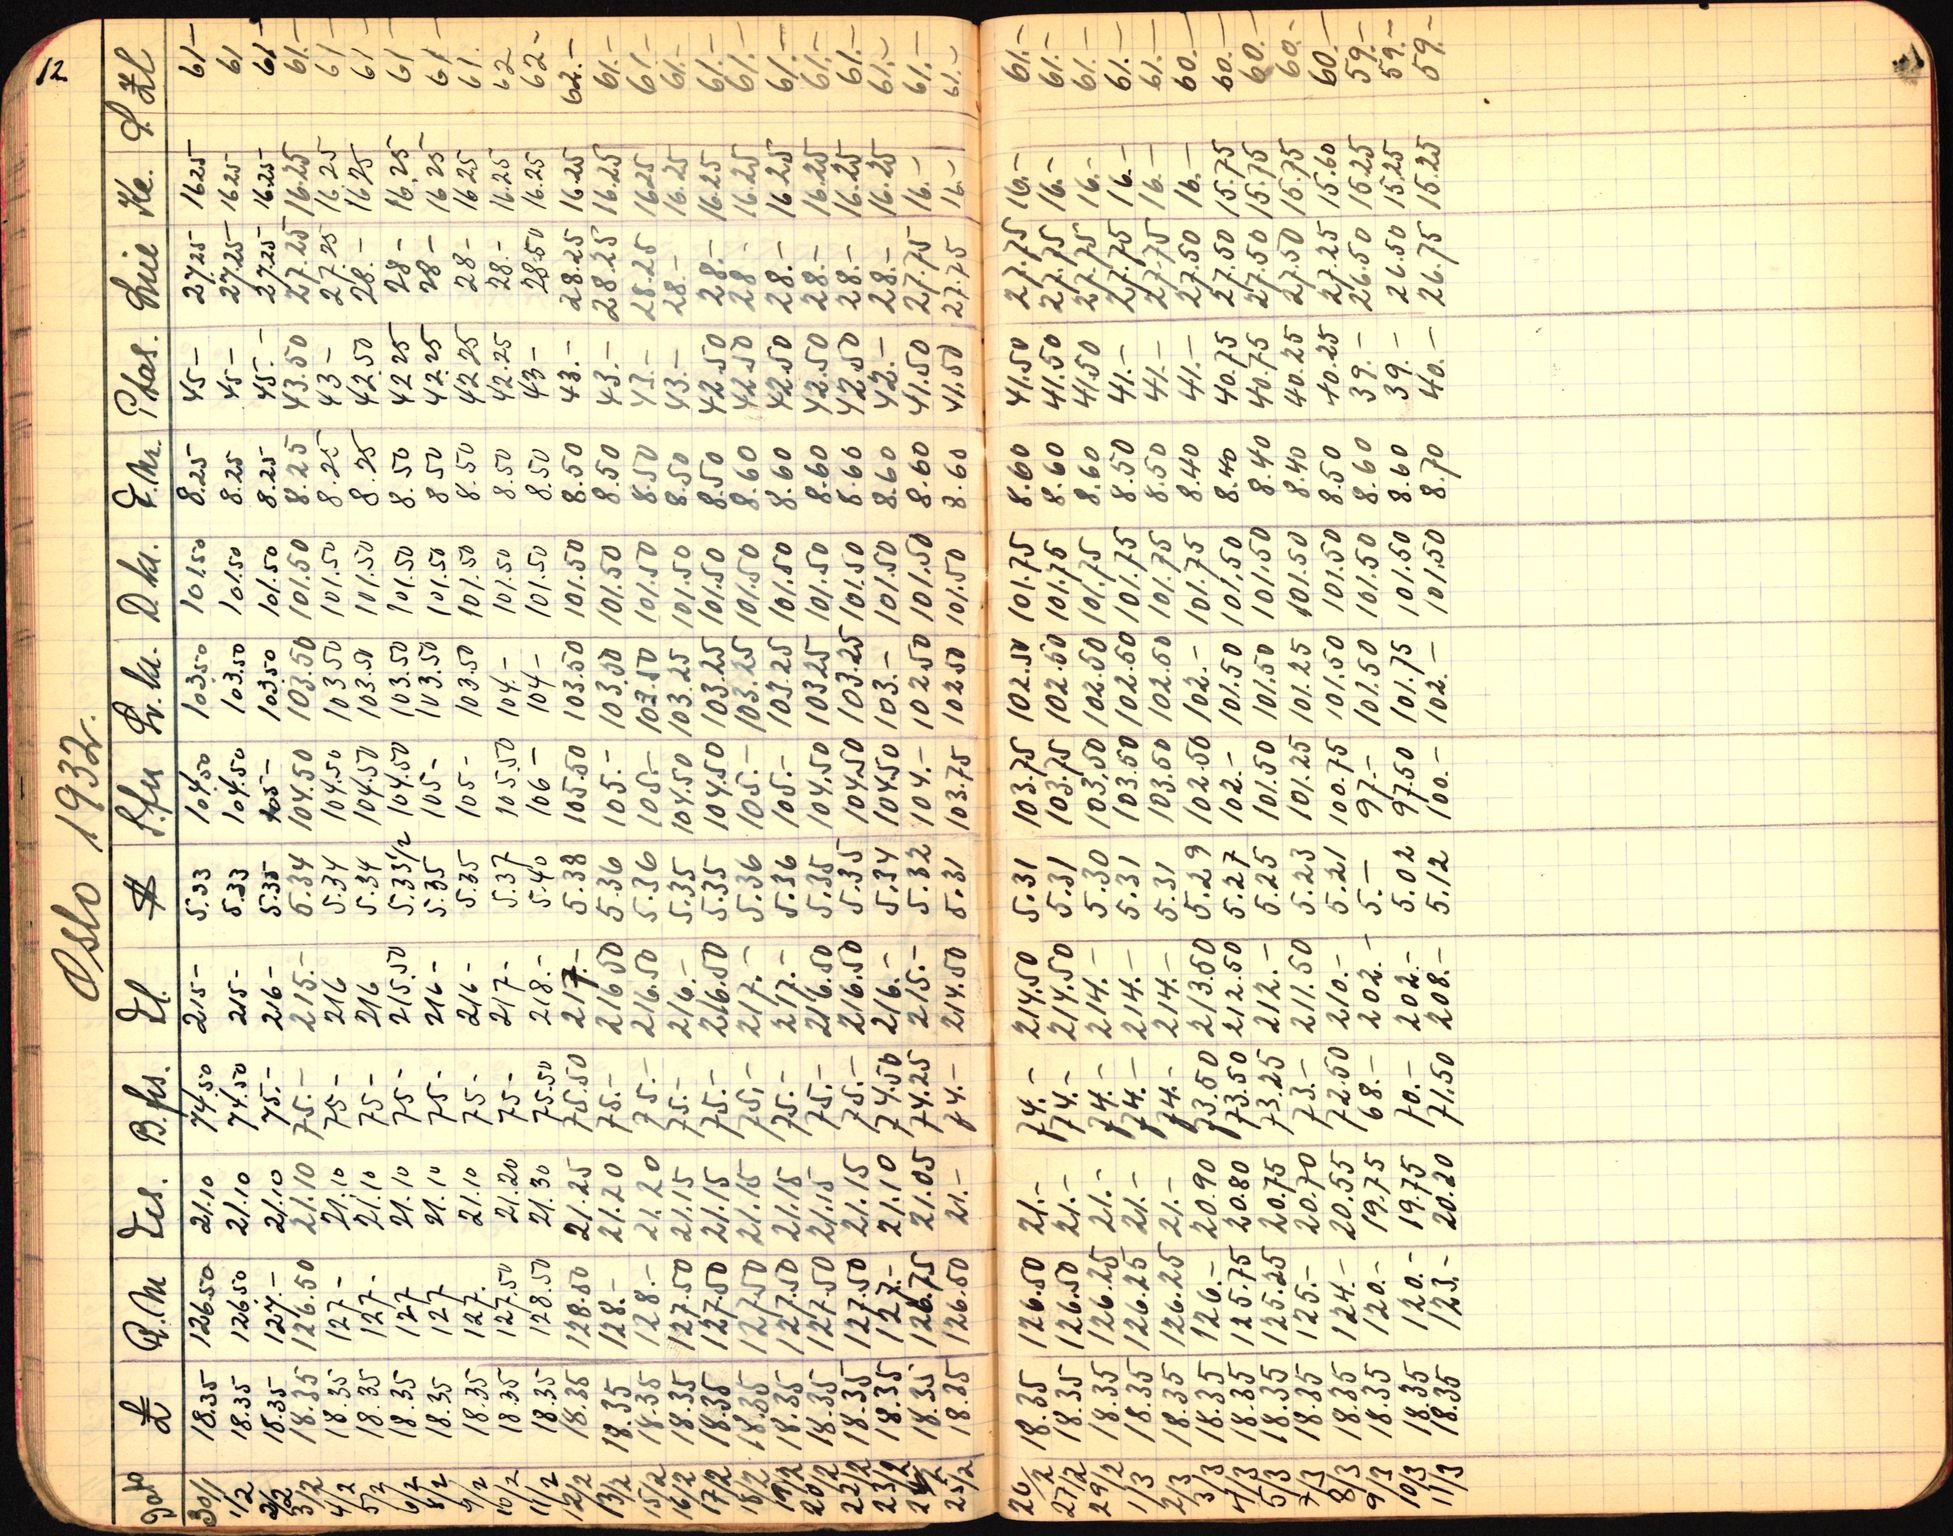 12
Oslo 1932.
Dato £ R.M fcs. B.fcs. fl. $ S.fcs Sv.kr. D.kr. F.Mk. Ptas. Lire Kc. P. Zl
30/1 18.35 126.50 21.10 74.50 215.- 5.33 104.50 103.50 101.50 8.25 45- 27.25 16.25 61-
1/2 18.35 126.50 21.10 74.50 215- 5.33 104.50 103.50 101.50 8.25 45- 27.25- 16.25 61
2/2 18.35 127.- 21.10 75.- 216- 5.35 105- 103.50 101.50 8.25 45.- 27.25 16.25 61-
3/2 18.35 126.50 21.10 75.- 215.- 5.34 104.50 103.50 101.50 8.25 43.50 27.25 16.25 61.-
4/2 18.35 127- 21.10 75- 216 5.34 104.50 103.50 101.50 8.25 43- 27.25 16.25 61-
5/2 18.35 127- 21.10 75- 216 5.34 104.50 103.50 101.50 8.25 42.50 28.- 16.25 61-
6/2 18.35 127 21.10 75- 215.50 5.33½ 104.50 103.50 101.50 8.50 42.25 28- 16.25 61-
8/2 18.35 127 21.10 75- 216- 5.35 105- 103.50 101.50 8.50 42.25 28- 16.25 61-
9/2 18.35 127. 21.10 75- 216- 5.35 105- 103.50 101.50 8.50 42.25 28- 16.25 61.
10/2 18.35 127.50 21.20 75- 217- 5.37 105.50 104.- 101.50 8.50 42.25 28.- 16.25 62-
11/2 18.35 128.50 21.30 75.50 218.- 5.40 106- 104- 101.50 8.50 43- 28.50 16.25 62-
12/2 18.35 128.50 21.25 75.50 217.- 5.38 105.50 103.50 101.50 8.50 43.- 28.25 16.25 62.-
13/2 18.35 128.- 21.20 75.- 216.50 5.36 105.- 103.50 101.50 8.50 43.- 28.25 16.25 61.-
15/2 18.35 128.- 21.20 75.- 216.50 5.36 105.- 103.50 101.50 8.50 43.- 28.25 16.25 61.-
16/2 18.35 127.50 21.15 75.- 216.- 5.35 104.50 103.25 101.50 8.50 43.- 28.- 16.25 61.-
17/2 18.35 127.50 21.15 75.- 216.50 5.35 104.50 103.25 101.50 8.50 42.50 28.- 16.25 61.-
18/2 18.35 127.50 21.15 75.- 217.- 5.36 105.- 103.25 101.50 8.60 42.50 28- 16.25 61.-
19/2 18.35 127.50 21.15 75.- 217.- 5.36 105.- 103.25 101.50 8.60 42.50 28.- 16.25 61.-
20/2 18.35 127.50 21.15- 75.- 216.50 5.35 104.50 103.25 101.50 8.60 42.50 28.- 16.25 61.-
22/2 18.35 127.50 21.15 75.- 216.50 5.35 104.50 103.25 101.50 8.60 42.50 28.- 16.25 61.-
23/2 18.35 127.- 21.10 74.50 216.- 5.34 104.50 103.- 101.50 8.60 42.- 28.- 16.25 61.-
24/2 18.35 126.75 21.05 74.25 215.- 5.32 104.- 102.50 101.50 8.60 41.50 27.75 16.- 61.-
25/2 18.35 126.50 21.- 74.- 214.50 5.31 103.75 102.50 101.50 8.60 41.50 27.75 16.- 61.-
26/2 18.35 126.50 21.- 74.- 214.50 5.31 103.75 102.50 101.75 8.60 41.50 27.75 16.- 61.-
27/2 18.35 126.50 21.- 74.- 214.50 5.31 103.75 102.50 101.75 8.60 41.50 27.75 16.- 61.-
29/2 18.35 126.25 21.- 74.- 214.- 5.30 103.50 102.50 101.75 8.60 41.50 27.75 16.- 61.-
1/3 18.35 126.25 21.- 74.- 214.- 5.31 103.50 102.50 101.75 8.50 41.- 27.75 16.- 61.-
2/3 18.35 126.25 21.- 74.- 214.- 5.31 103.50 102.50 101.75 8.50 41.- 27.75 16.- 61.-
3/3 18.35 126.- 20.90 73.50 213.50 5.29 102.50 102.- 101.75 8.40 41.- 27.50 16.- 60.-
4/3 18.35 125.75 20.80 73.50 212.50 5.27 102.- 101.50 101.50 8.40 40.75 27.50 15.75 60.-
5/3 18.35 125.25 20.75 73.25 212.- 5.25 101.50 101.50 101.50 8.40 40.75 27.50 15.75 60.-
7/3 18.35 125.- 20.70 73.- 211.50 5.23 101.25 101.25 101.50 8.40 40.25 27.50 15.75 60.-
8/3 18.35 124.- 20.55 72.50 210.- 5.21 100.75 101.50 101.50 8.50 40.25 27.25 15.60 60.-
9/3 18.35 120.- 19.75 68.- 202.- 5.- 97.- 101.50 101.50 8.60 39.- 26.50 15.25 59.-
10/3 18.35 120.- 19.75 70.- 202.- 5.02 97.50 101.75 101.50 8.60 39.- 26.50 15.25 59.-
11/3 18.35 123.- 20.20 71.50 208.- 5.12 100.- 102.- 101.50 8.70 40.- 26.75 15.25 59.-